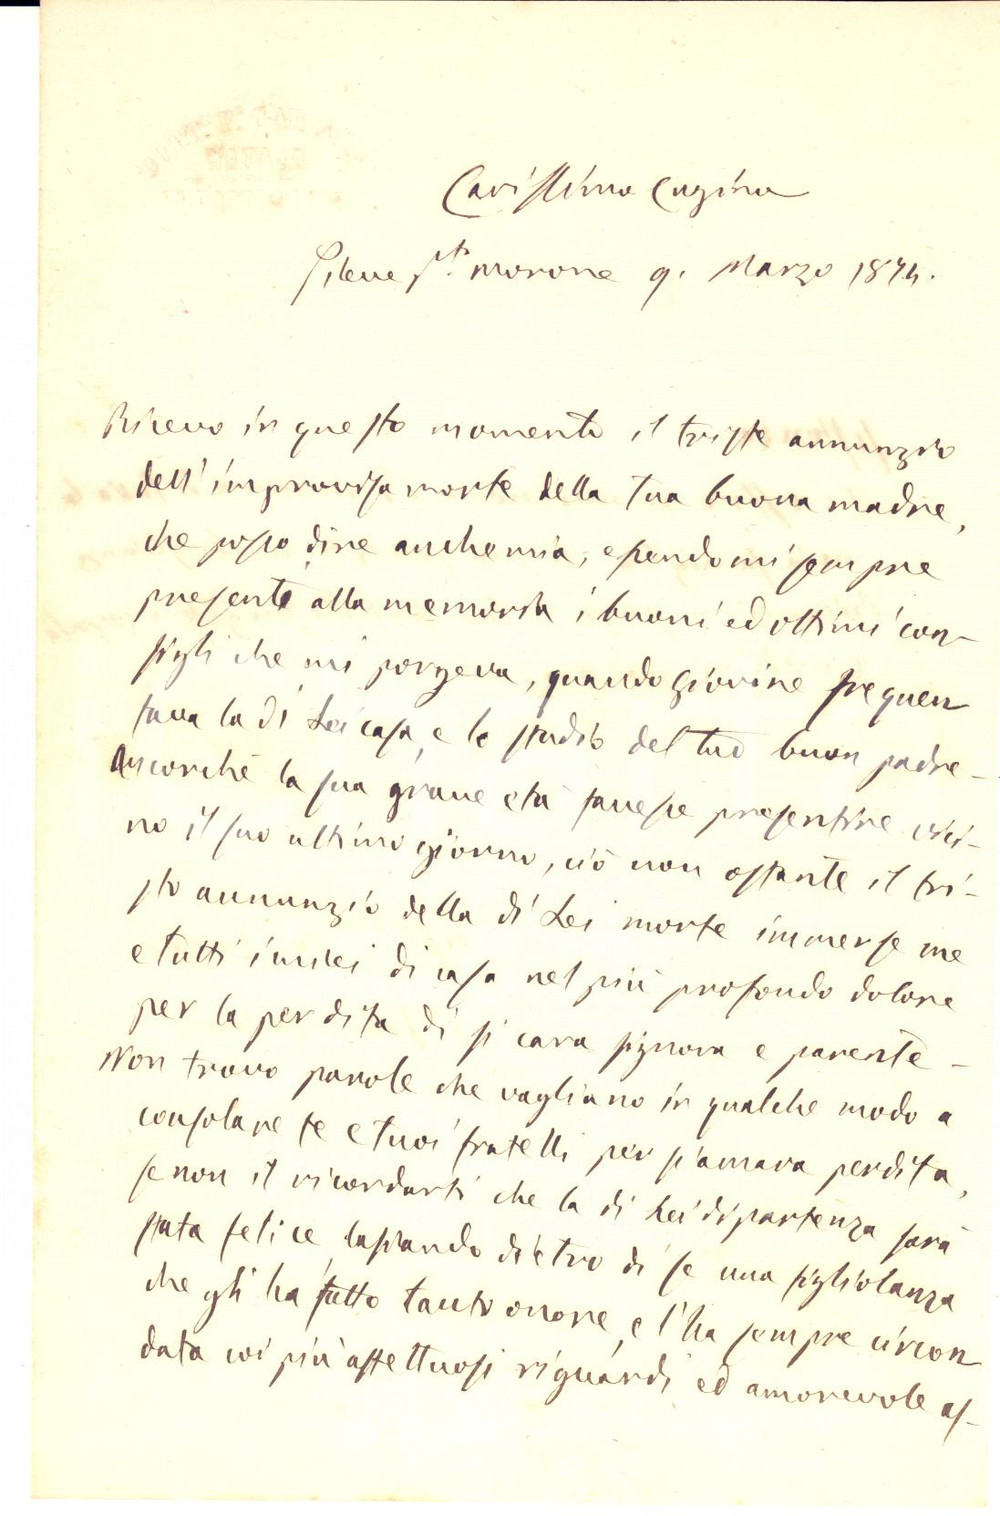 Carissima Cugina
Pieve P.to Morone 9. Marzo 1874.
Ricevo in questo momento il triste annunzio
dell'improvisa morte della tua buona madre,
che posso dire anche mia, essendomi sempre
presente alla memoria i buoni ed ottimi con-
sigli che mi porgeva, quando giovine frequen
tava la di Lei casa, e lo studio del tuo buon padre -
Ancorchè la sua grave età facesse presentire vici-
no il suo ultimo giorno, ciò non ostante il tri-
sto annunzio della di Lei morte immerse me
e tutti i miei di casa nel più profondo dolore
per la perdita di sì cara signora e parente -
Non trovo parole che vagliano in qualche modo a
consolare te e tuoi fratelli per sì amara perdita,
se non il ricordarti che la di Lei dipartenza sarà
stata felice lasciando dietro di se una figliolanza
che gli ha fatto tanto onore, e l'ha sempre circon
data coi più affettuosi riguardi ed amorevole as-